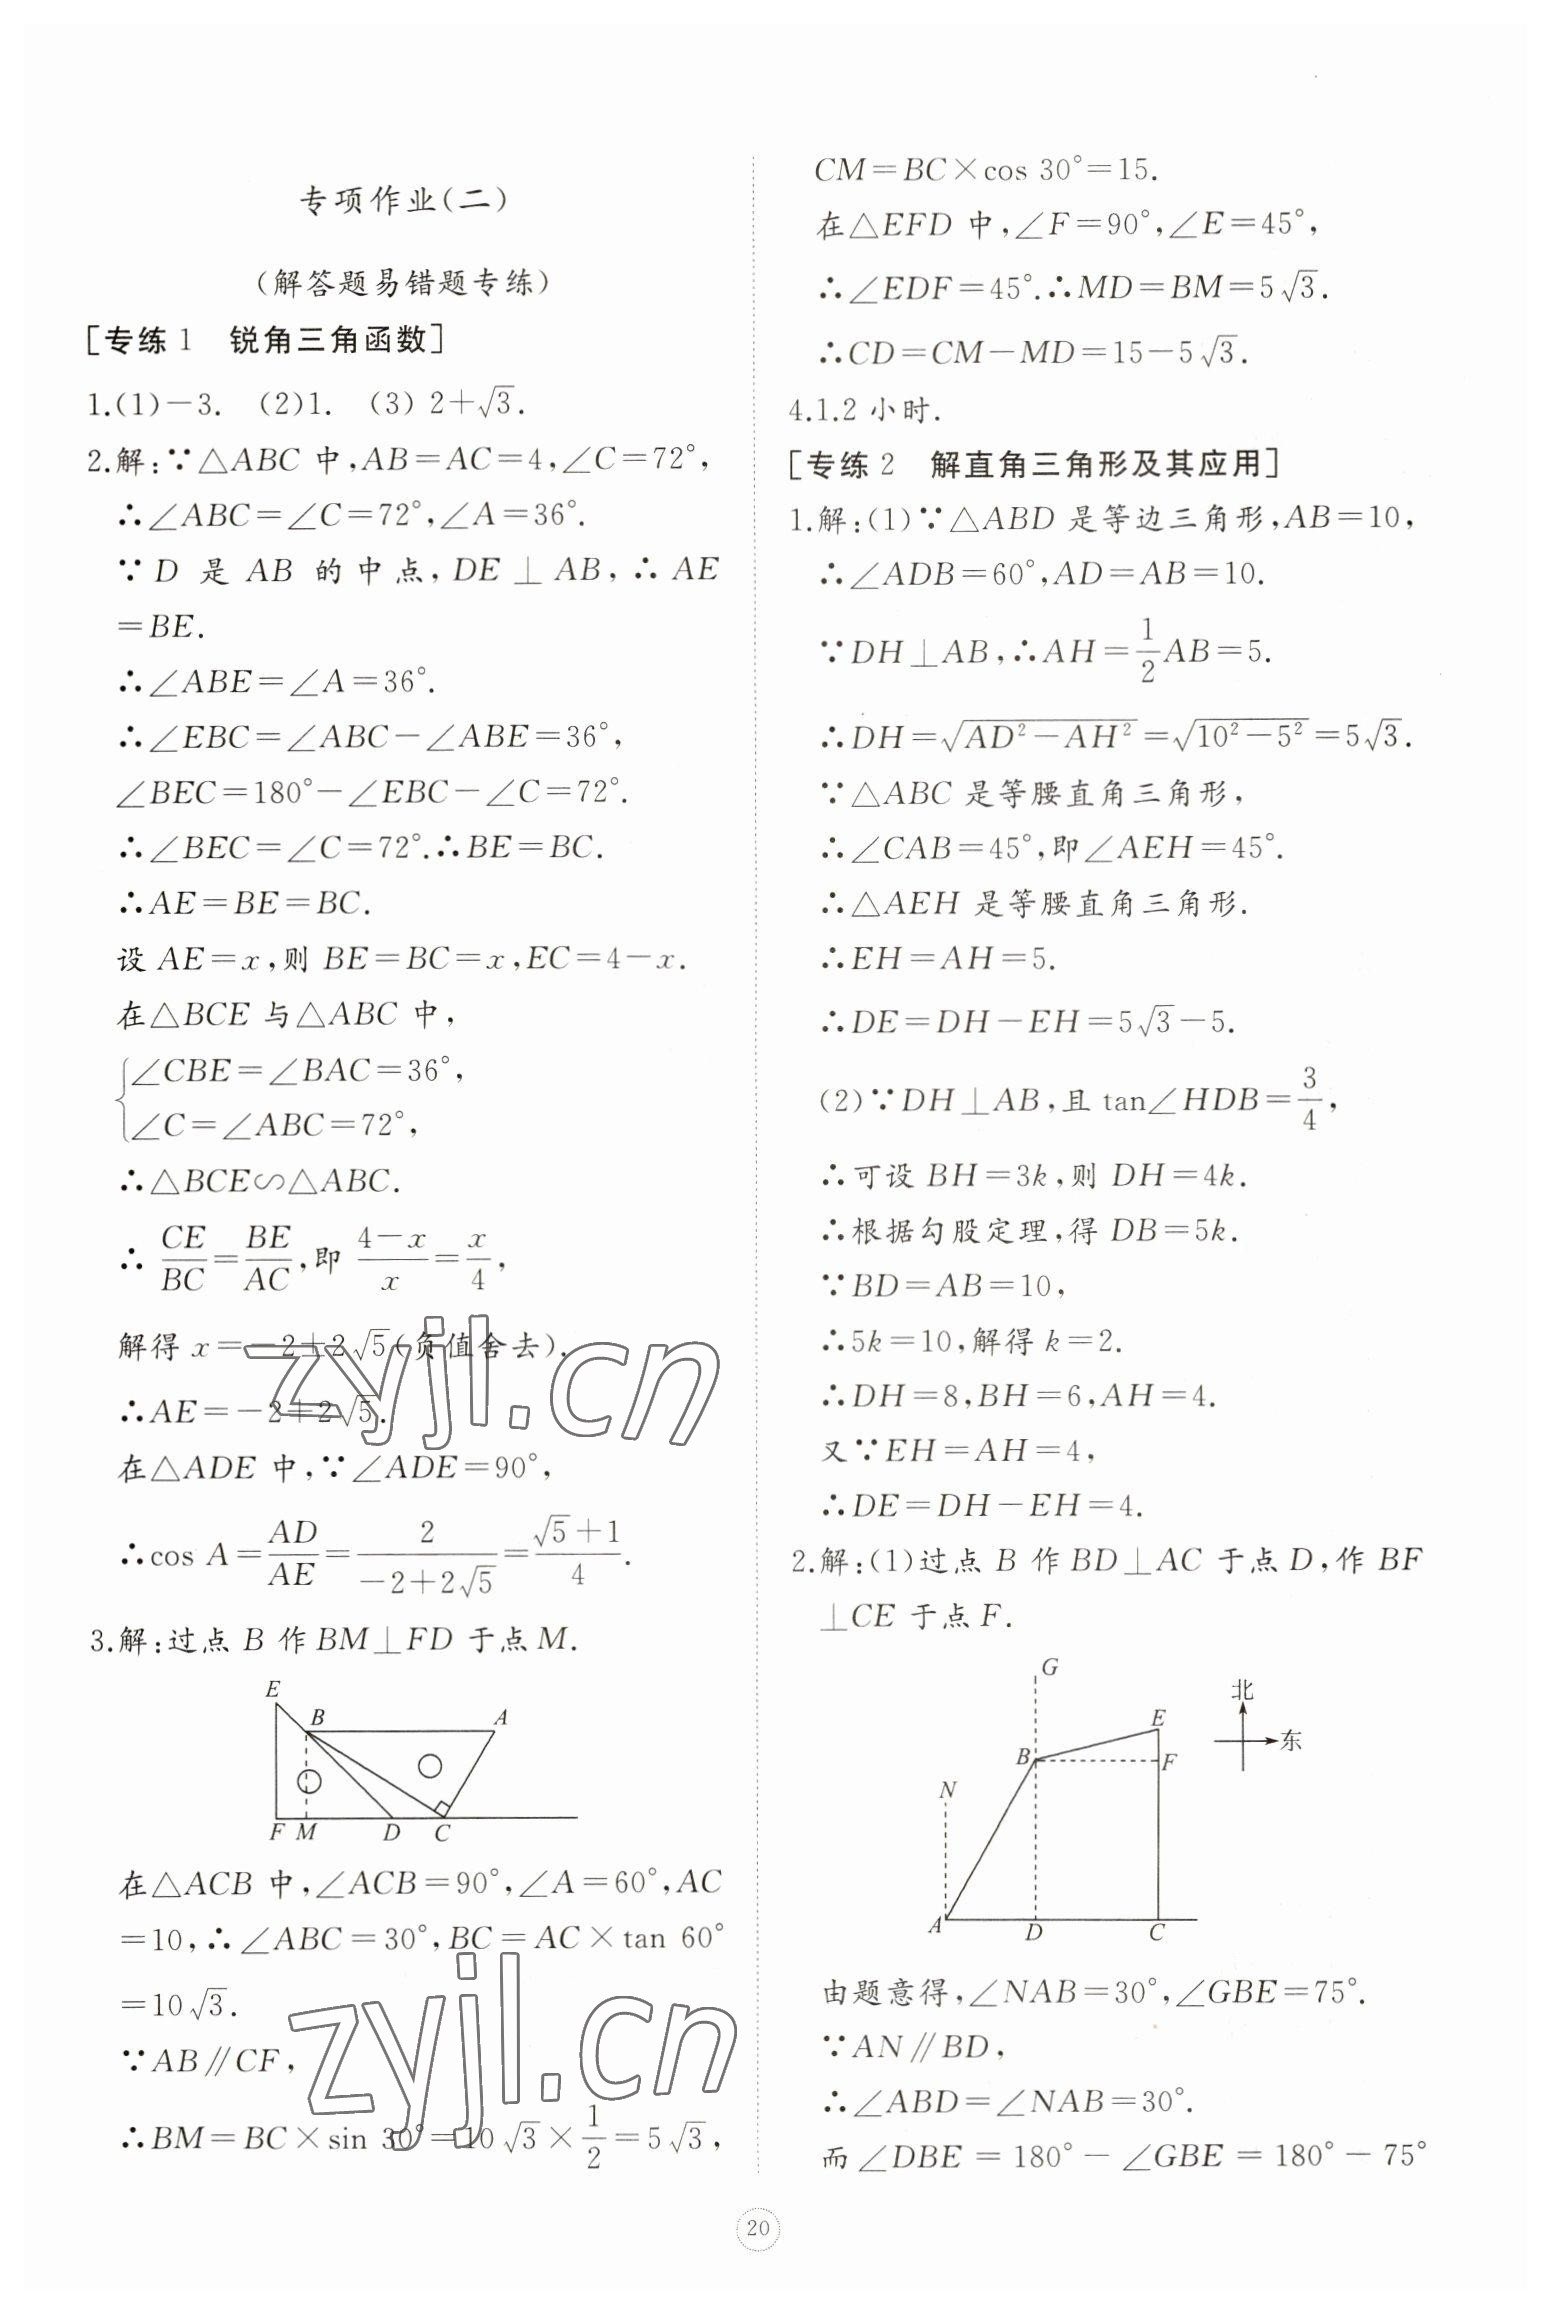 专项作业(二)
(解答题易错题专练)
[专练1 锐角三角函数]
1.(1)-3. (2)1. (3) 2+√3.
2.解:∵△ABC 中,AB=AC=4,∠C=72°,
∴∠ABC=∠C=72°,∠A=36°.
∵ D 是 AB 的中点, DE⊥AB, ∴ AE
=BE.
∴∠ABE=∠A=36°.
∴∠EBC=∠ABC-∠ABE=36°,
∠BEC=180°-∠EBC-∠C=72°.
∴∠BEC=∠C=72°.∴BE=BC.
∴AE=BE=BC.
设 AE=x,则 BE=BC=x,EC=4-x.
在△BCE 与△ABC 中,
{∠CBE=∠BAC=36°,
∠C=∠ABC=72°,
∴△BCE∽△ABC.
∴ CE/BC=BE/AC,即 (4-x)/x=x/4,
解得 x=-2±2√5(负值舍去).
∴AE=-2+2√5.
在△ADE 中,∵∠ADE=90°,
∴cos A=AD/AE=2/(-2+2√5)=(√5+1)/4.
3.解:过点 B 作 BM⊥FD 于点 M.
E
B A
F M D C
在△ACB 中,∠ACB=90°,∠A=60°,AC
=10,∴∠ABC=30°,BC=AC×tan 60°
=10√3.
∵AB∥CF,
∴BM=BC×sin 30°=10√3×1/2=5√3,
CM=BC×cos 30°=15.
在△EFD 中,∠F=90°,∠E=45°,
∴∠EDF=45°.∴MD=BM=5√3.
∴CD=CM-MD=15-5√3.
4.1.2 小时.
[专练2 解直角三角形及其应用]
1.解:(1)∵△ABD 是等边三角形,AB=10,
∴∠ADB=60°,AD=AB=10.
∵DH⊥AB,∴AH=1/2AB=5.
∴DH=√(AD²-AH²)=√(10²-5²)=5√3.
∵△ABC 是等腰直角三角形,
∴∠CAB=45°,即∠AEH=45°.
∴△AEH 是等腰直角三角形.
∴EH=AH=5.
∴DE=DH-EH=5√3-5.
(2)∵DH⊥AB,且 tan∠HDB=3/4,
∴可设 BH=3k,则 DH=4k.
∴根据勾股定理,得 DB=5k.
∵BD=AB=10,
∴5k=10,解得 k=2.
∴DH=8,BH=6,AH=4.
又∵EH=AH=4,
∴DE=DH-EH=4.
2.解:(1)过点 B 作 BD⊥AC 于点 D,作 BF
⊥CE 于点 F.
G
北
E
东
B F
N
A D C
由题意得,∠NAB=30°,∠GBE=75°.
∵AN∥BD,
∴∠ABD=∠NAB=30°.
而∠DBE=180°-∠GBE=180°-75°
zyjl.cn
zyjl.cn
20